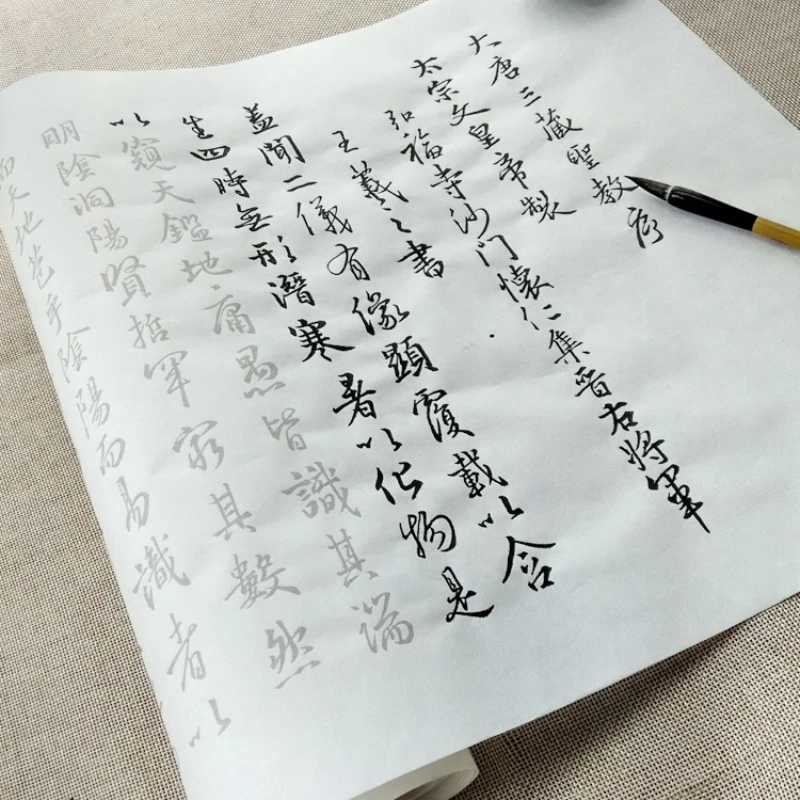 大唐三藏聖教序
太宗文皇帝製
弘福寺沙门懷仁集晉右將軍
王羲之書
盖聞二儀有像顯覆載以含
生四時無形潛寒暑以化物是
以窺天鑑地庸愚皆識其端
明陰洞陽賢哲罕窮其數然
而天地苞乎陰陽而易識者以